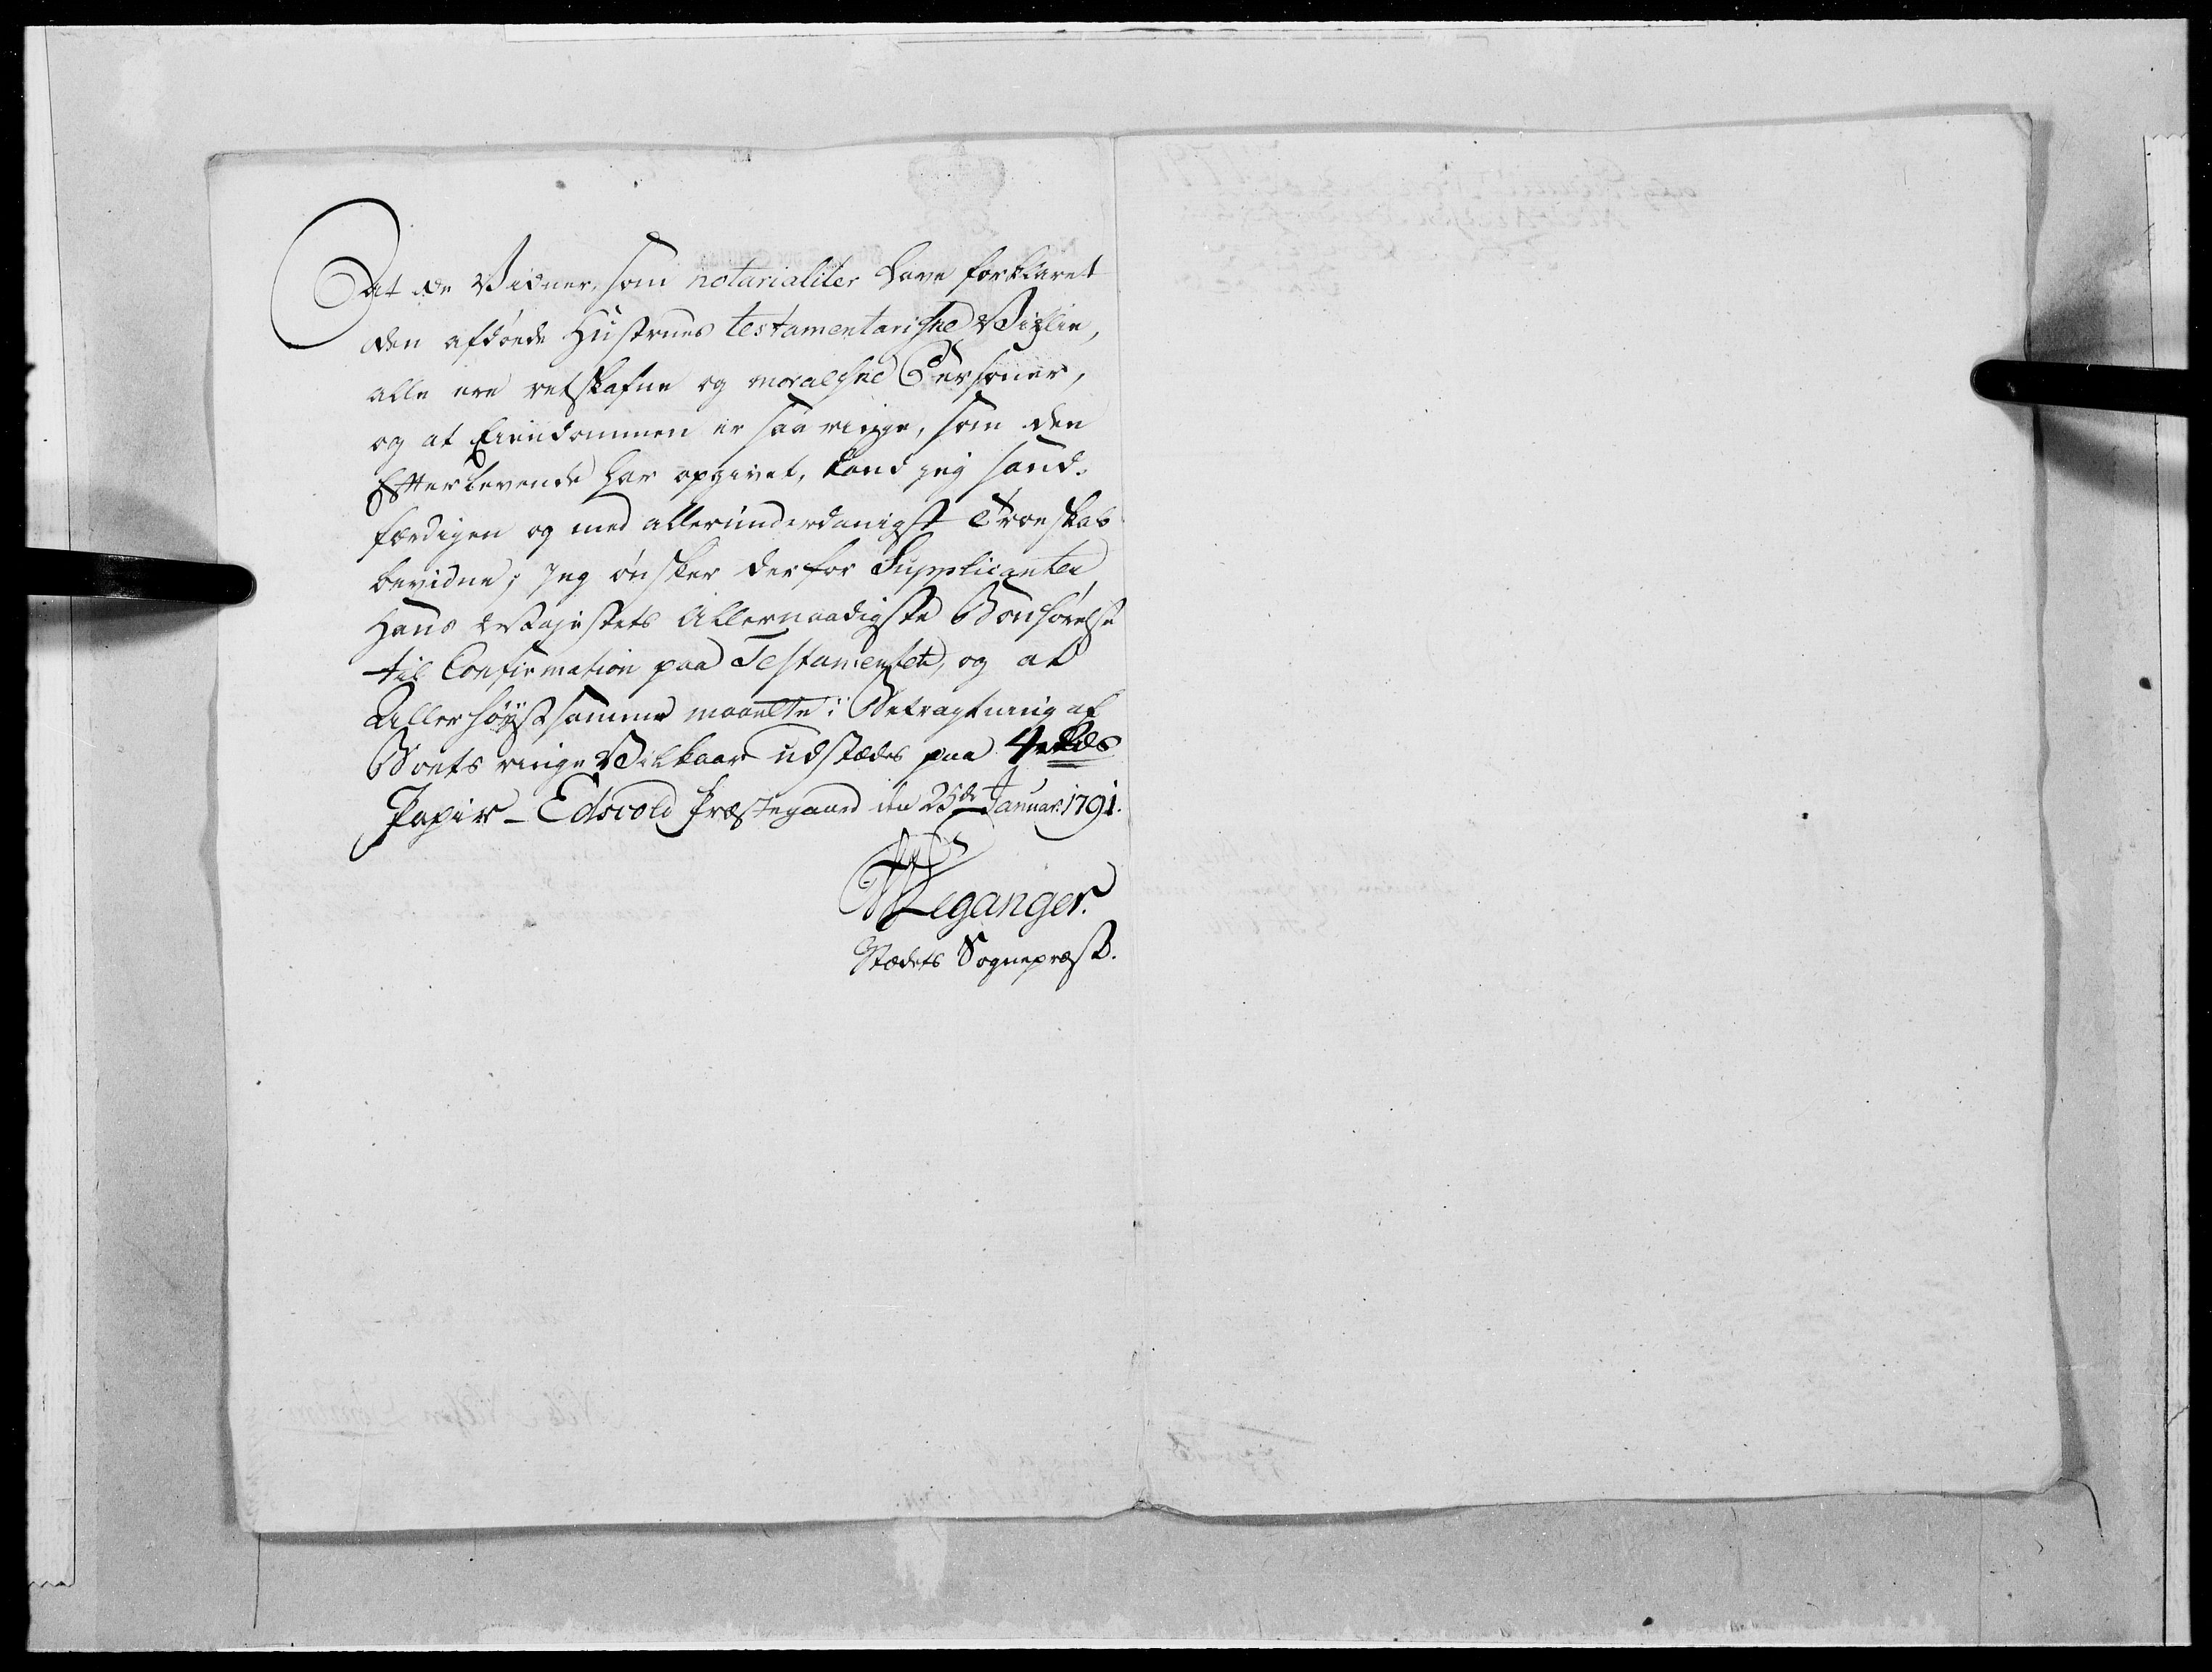 At de Vidner, som notarialiter have forklaret
den afdøde Hustrues testamentariske Villie,
alle ere retskafne og moralske Personer,
og at Eiendommen er saa ringe, som den
Efterlevende har opgivet, kand jeg sand-
færdigen og med allerunderdanigst Troeskab
bevidne; jeg ønsker derfor Supplicanten
Hans Majestets Allernaadigste Bønhørelse
til Confirmation paa Testamentet, og at
Allerhøystsamme maaette i Betragtning af
Boets ringe Vilkaar udstædes paa
Papir – Edsvold Præstegaard den 25de Januar: 1791.
Leganger.
Stædets Sognepræst.